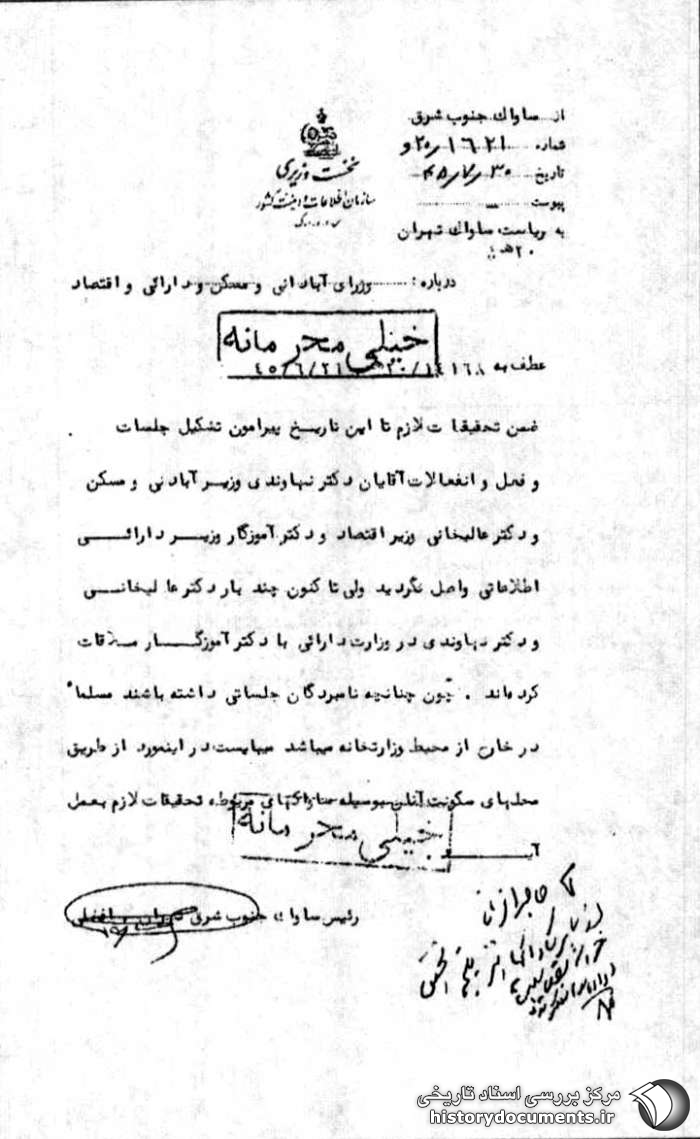 از ساواك جنوب شرق
شماره ۲۰/۱۶۲۱و
تاریخ ۴۵/۷/۳۰
پیوست
به ریاست ساواك تهران
۲۰ هـ ۴
نخست وزیری
سازمان اطلاعات و امنیت کشور
س.ا.و.ا.ک
درباره : وزرای آبادانی و مسکن و دارائی و اقتصاد
خیلی محرمانه
عطف به ۴۵/۶/۲۱
ضمن تحقیقات لازم تا این تاریخ پیرامون تشکیل جلسات
و فعل و انفعالات آقایان دکتر نهاوندی وزیر آبادنی و مسکن
و دکتر عالیخانی وزیر اقتصاد و دکتر آموزگار وزیر دارائی
اطلاعاتی واصل نگردید ولی تا کنون چند بار دکتر عالیخانی
و دکتر نهاوندی در وزارت دارائی با دکتر آموزگار ملاقات
کرده‌اند . چون چنانچه نامبردگان جلساتی داشته باشند مسلما"
در خارج از محیط وزارتخانه میباشد میبایست در اینمورد از طریق
محلهای سکونت آنان بوسیله ساواکهای مربوطه تحقیقات لازم بعمل
آید
خیلی محرمانه
رئیس ساواك جنوب شرق
مرکز بررسی اسناد تاریخی
historydocuments.ir